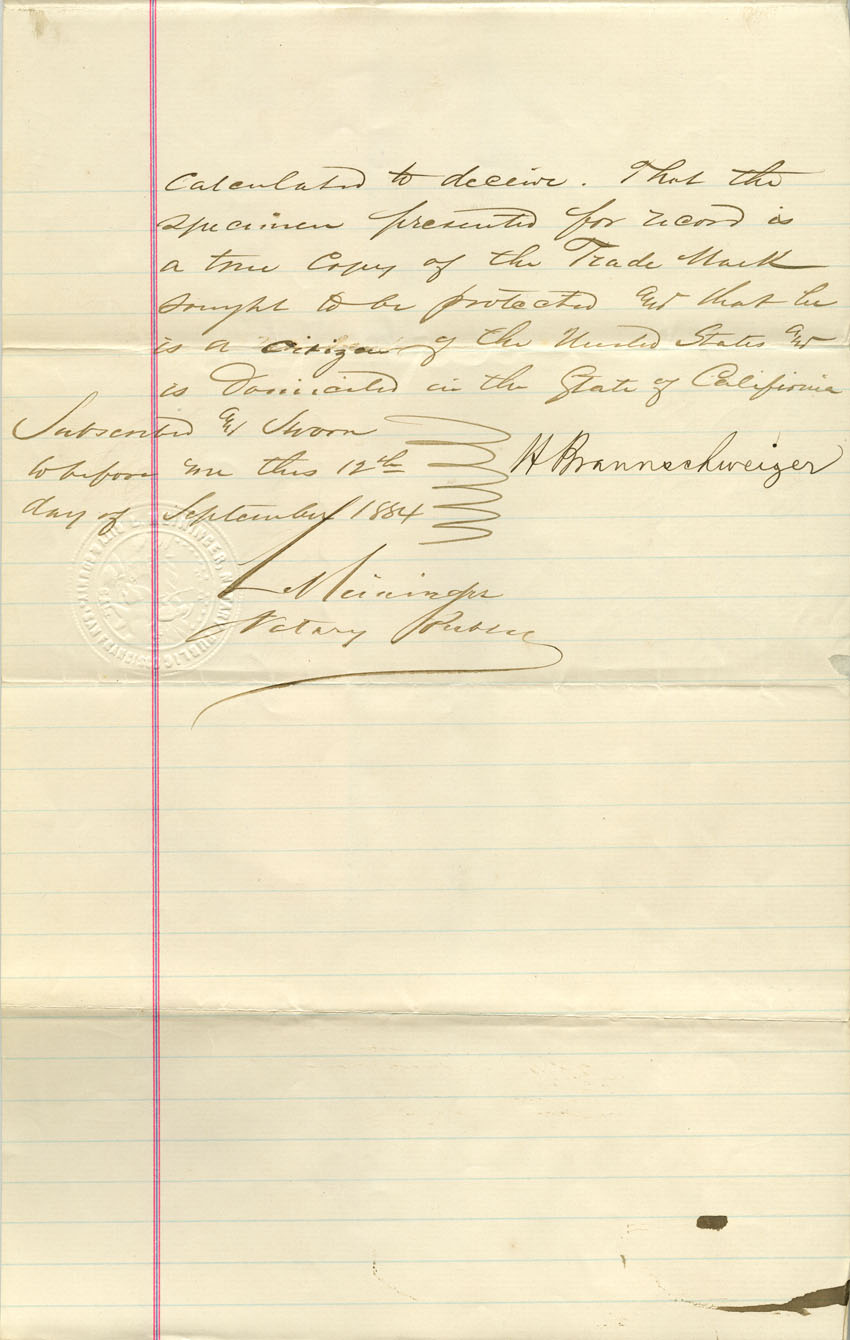 calculated to deceive. That the
specimen presented for record is
a true Copy of the Trade Mark
sought to be protected and that he
is a citizen of the United States and
is Domiciled in the State of California
Subscribed and Sworn
to before me this 12th
day of September 1884
H Braunschweiger
L Meininger
Notary Public